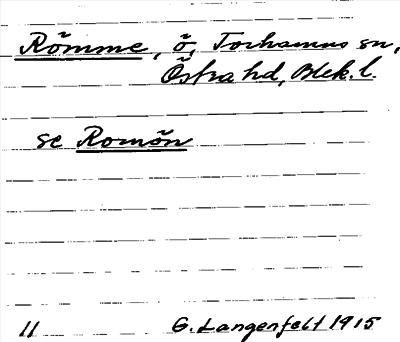 Römme, ö, Torhamns sn,
Östra hd, Blek. l.
se Romön
11 G. Langenfelt 1915